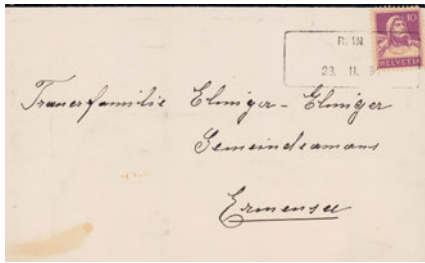 10
HELVETIA
R. IN
23. II. 3
Trauerfamilie Elmiger - Elmiger
Gemeindeamans
Ermensee